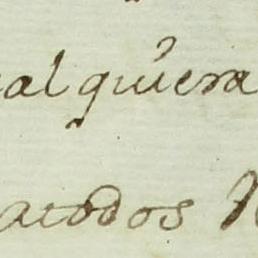 al quiera
atodos